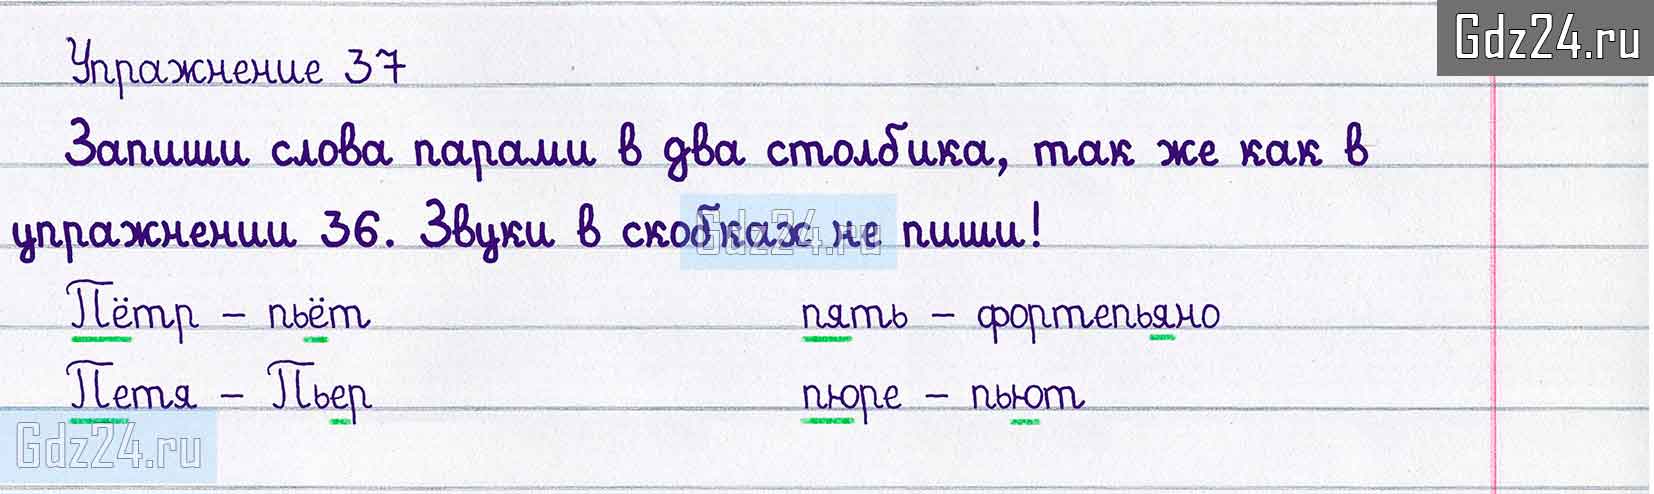 Gdz24.ru
Упражнение 37
Запиши слова парами в два столбика, так же как в
упражнении 36. Звуки в скобках не пиши!
Gdz24.ru
Пётр – пьёт пять – фортепьяно
Петя – Пьер пюре – пьют
Gdz24.ru